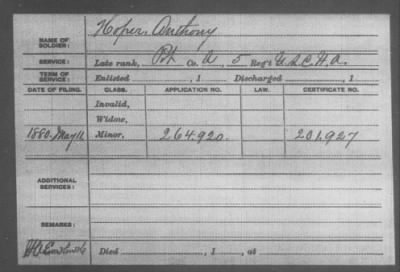 Hoper Anthony
NAME OF SOLDIER:
SERVICE: Late rank, Pvt Co. A, 5 Reg't U.S.C.H.A.
TERM OF SERVICE: Enlisted , 1 Discharged , 1
DATE OF FILING. CLASS. APPLICATION NO. LAW. CERTIFICATE NO.
Invalid,
Widow,
1880. May 11 Minor, 264.920. 201,927
ADDITIONAL SERVICES:
REMARKS:
Died , 1 , at